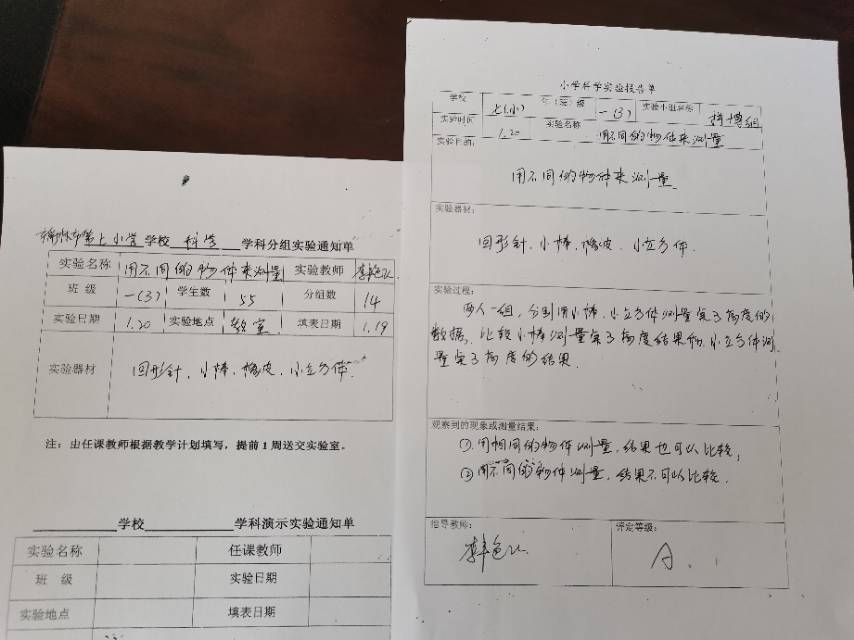 第七小学学校 科学 学科分组实验通知单
实验名称 用不同的物体来测量 实验教师
班 级 一(3) 学生数 55 分组数 14
实验日期 1.20 实验地点 教室 填表日期 1.19
实验器材 回形针、小棒、橡皮、小立方体
注：由任课教师根据教学计划填写，提前1周送交实验室。
学校 学科演示实验通知单
实验名称 任课教师
班 级 实验日期
实验地点 填表日期
小学科学实验报告单
学校 七(小) 年（班）级 一(3) 实验小组名称
实验时间 1.20 实验名称 用不同的物体来测量
实验目的：
用不同的物体来测量
实验器材：
回形针、小棒、橡皮、小立方体.
实验过程：
两人一组，分别用小棒、小立方体测量桌子高度的
数据，比较小棒测量桌子高度结果和小立方体测
量桌子高度的结果.
观察到的现象或测量结果：
①.用相同的物体测量，结果也可以比较；
②用不同的物体测量，结果不可以比较.
指导教师： 评定等级：
A.